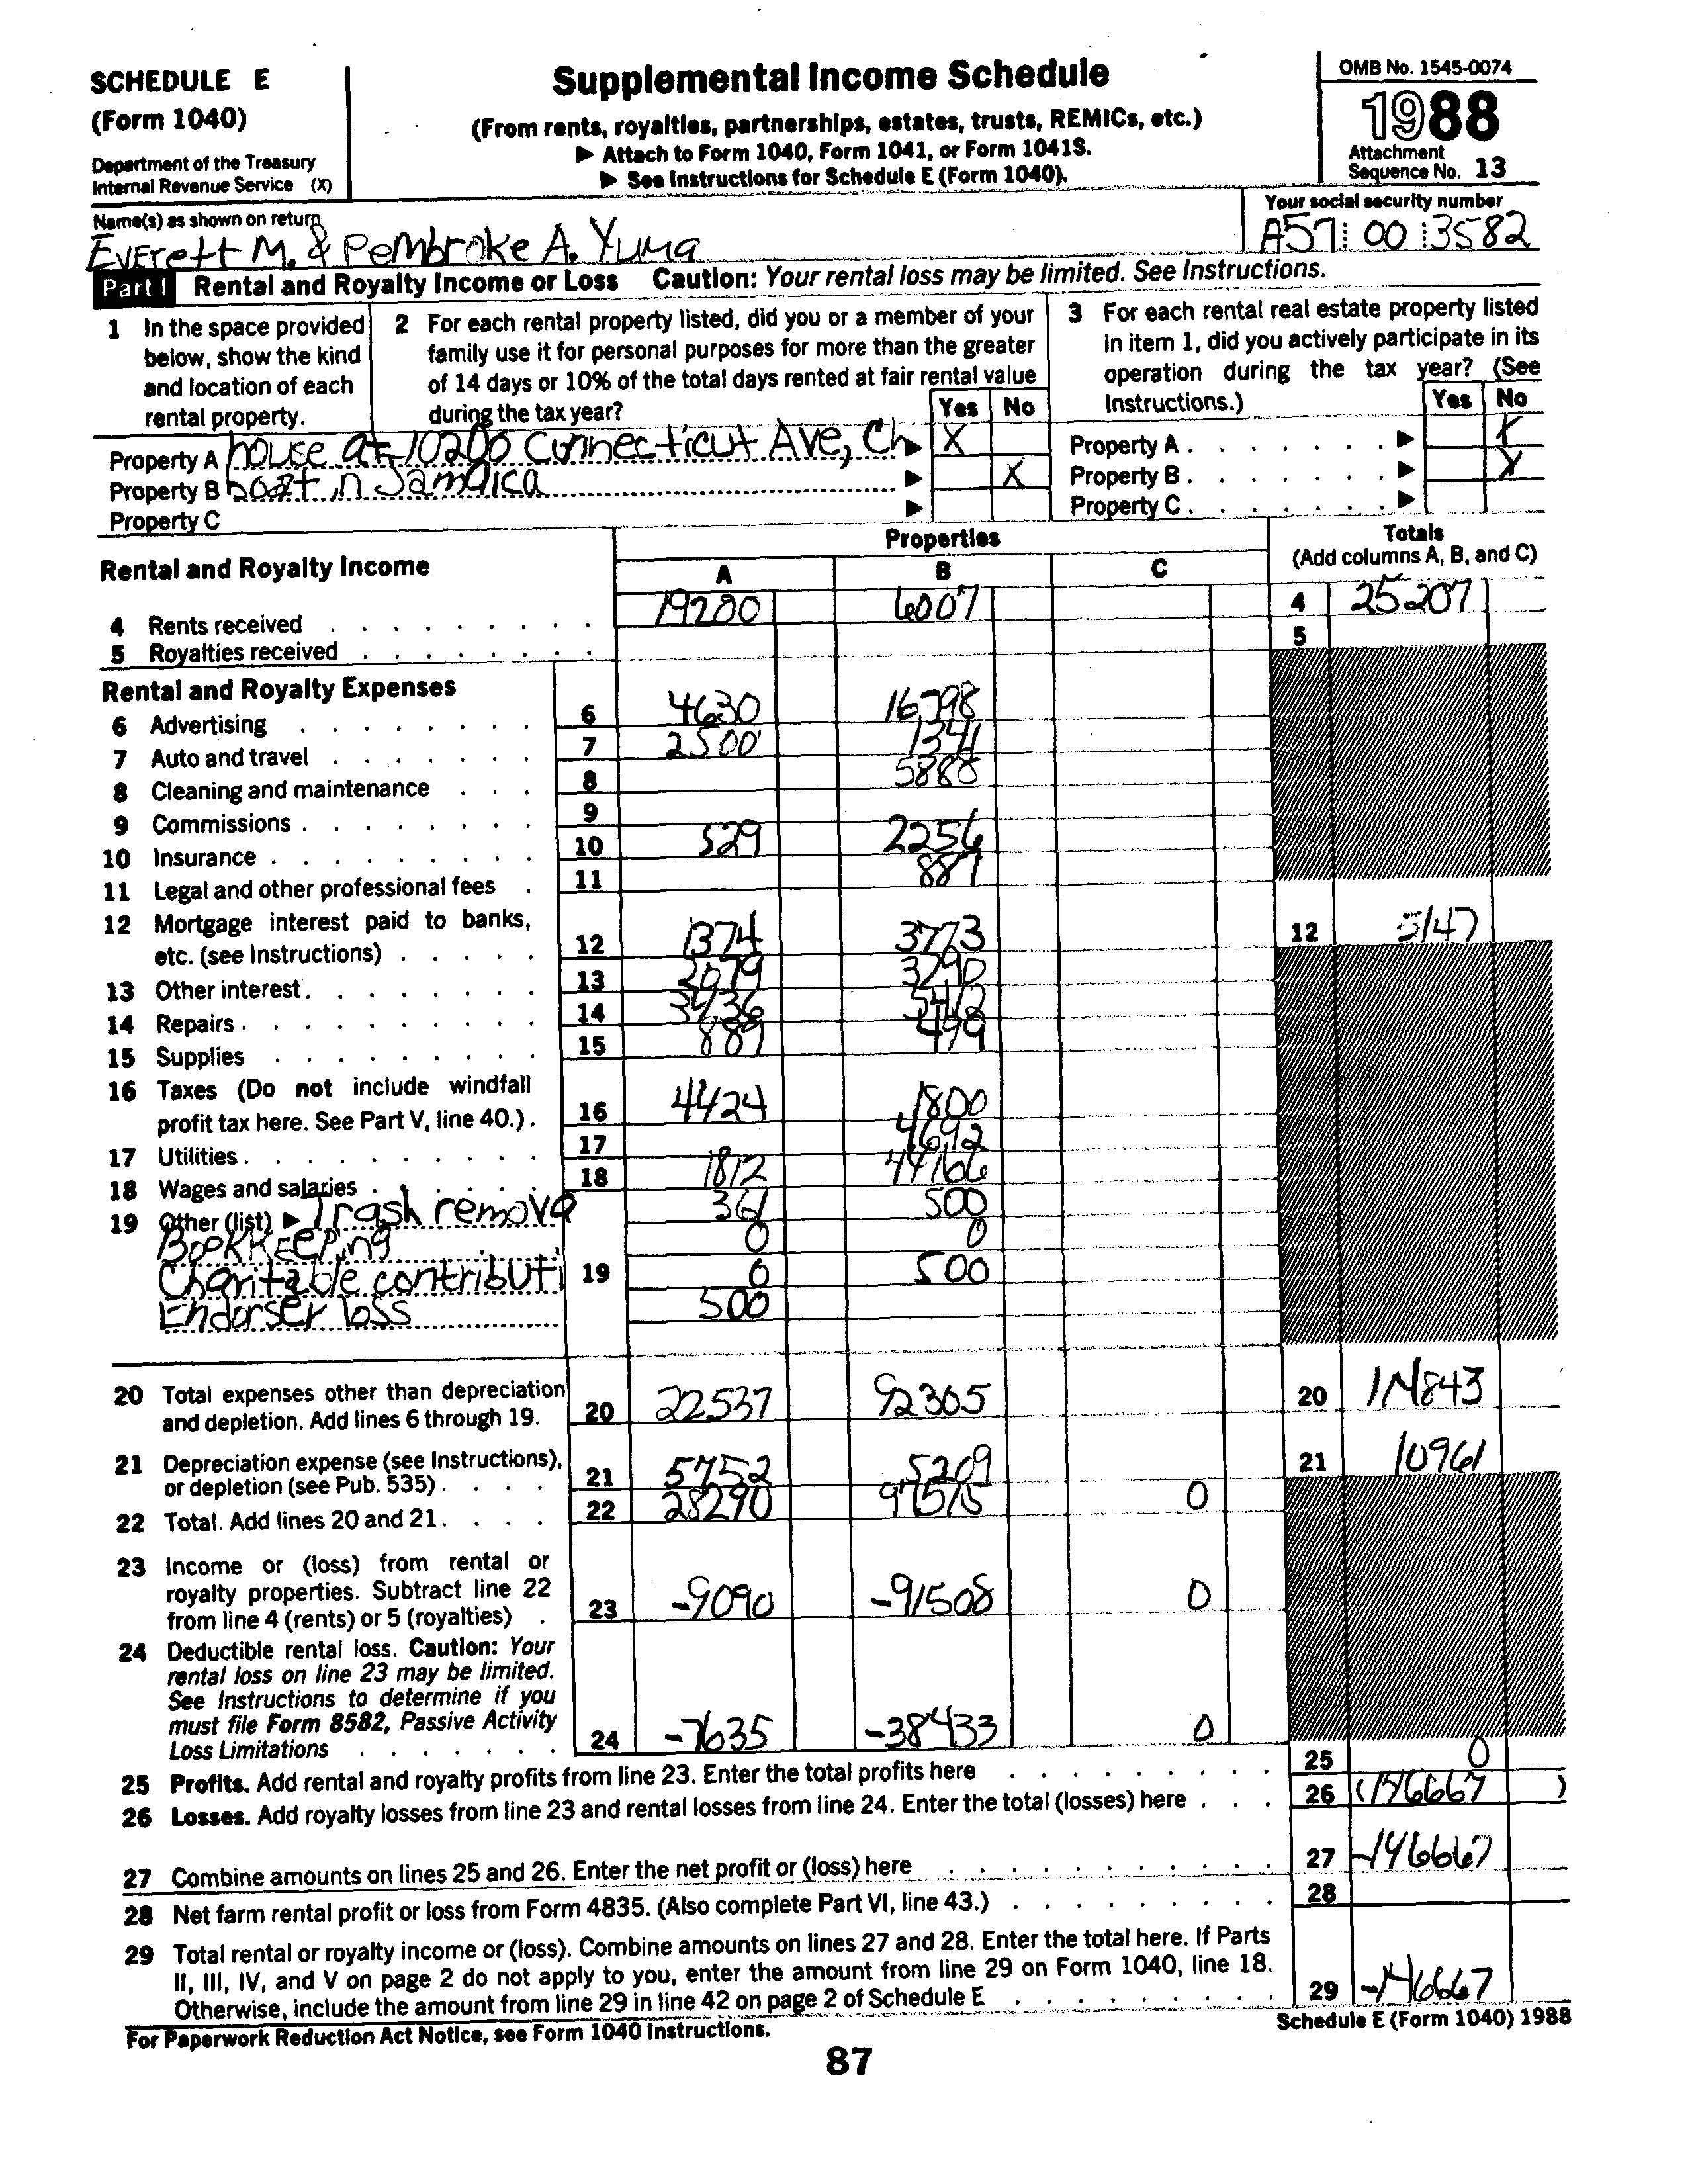 SCHEDULE E
(Form 1040)
Department of the Treasury
Internal Revenue Service (X)
Supplemental Income Schedule
(From rents, royalties, partnerships, estates, trusts, REMICs, etc.)
▶ Attach to Form 1040, Form 1041, or Form 1041S.
▶ See Instructions for Schedule E (Form 1040).
OMB No. 1545-0074
1988
Attachment
Sequence No. 13
Name(s) as shown on return
Everett M. & Pembroke A. Yuma
Your social security number
A57 00 3582
Part I Rental and Royalty Income or Loss Caution: Your rental loss may be limited. See Instructions.
1 In the space provided
below, show the kind
and location of each
rental property.
2 For each rental property listed, did you or a member of your
family use it for personal purposes for more than the greater
of 14 days or 10% of the total days rented at fair rental value
during the tax year?
Yes No
3 For each rental real estate property listed
in item 1, did you actively participate in its
operation during the tax year? (See
Instructions.)
Yes No
Property A house at 10200 Connecticut Ave, Ch ▶ X
Property A . . . . . . . ▶ X
Property B boat in Jamaica ▶ X
Property B . . . . . . . ▶ X
Property C ▶
Property C . . . . . . . ▶
Rental and Royalty Income
Properties
A B C
Totals
(Add columns A, B, and C)
4 Rents received 19200 6007 4 25207
5 Royalties received 5
Rental and Royalty Expenses
6 Advertising 6 4630 16798
7 Auto and travel 7 2500 1341
8 Cleaning and maintenance 8 5888
9 Commissions 9
10 Insurance 10 529 2256
11 Legal and other professional fees 11 887
12 Mortgage interest paid to banks,
etc. (see Instructions) 12 1374 3773 12 5147
13 Other interest 13 2079 3290
14 Repairs 14 5412
15 Supplies 15 499
16 Taxes (Do not include windfall
profit tax here. See Part V, line 40.) 16 4424 1800
17 Utilities 17 4692
18 Wages and salaries 18 1812 44166
19 Other (list) ▶ Trash remova 361 500
Bookkeeping 0 0
Charitable contributi 19 0 500
Endorser loss 500
20 Total expenses other than depreciation
and depletion. Add lines 6 through 19. 20 22537 92305 20 114843
21 Depreciation expense (see Instructions),
or depletion (see Pub. 535) 21 5752 5209 21 10961
22 Total. Add lines 20 and 21 22 28290 97515 0
23 Income or (loss) from rental or
royalty properties. Subtract line 22
from line 4 (rents) or 5 (royalties) 23 -9090 -91508 0
24 Deductible rental loss. Caution: Your
rental loss on line 23 may be limited.
See Instructions to determine if you
must file Form 8582, Passive Activity
Loss Limitations 24 -7635 -38433 0
25 Profits. Add rental and royalty profits from line 23. Enter the total profits here 25 0
26 Losses. Add royalty losses from line 23 and rental losses from line 24. Enter the total (losses) here 26 (146667)
27 Combine amounts on lines 25 and 26. Enter the net profit or (loss) here 27 -146667
28 Net farm rental profit or loss from Form 4835. (Also complete Part VI, line 43.) 28
29 Total rental or royalty income or (loss). Combine amounts on lines 27 and 28. Enter the total here. If Parts
II, III, IV, and V on page 2 do not apply to you, enter the amount from line 29 on Form 1040, line 18.
Otherwise, include the amount from line 29 in line 42 on page 2 of Schedule E 29 -146667
For Paperwork Reduction Act Notice, see Form 1040 Instructions.
Schedule E (Form 1040) 1988
87